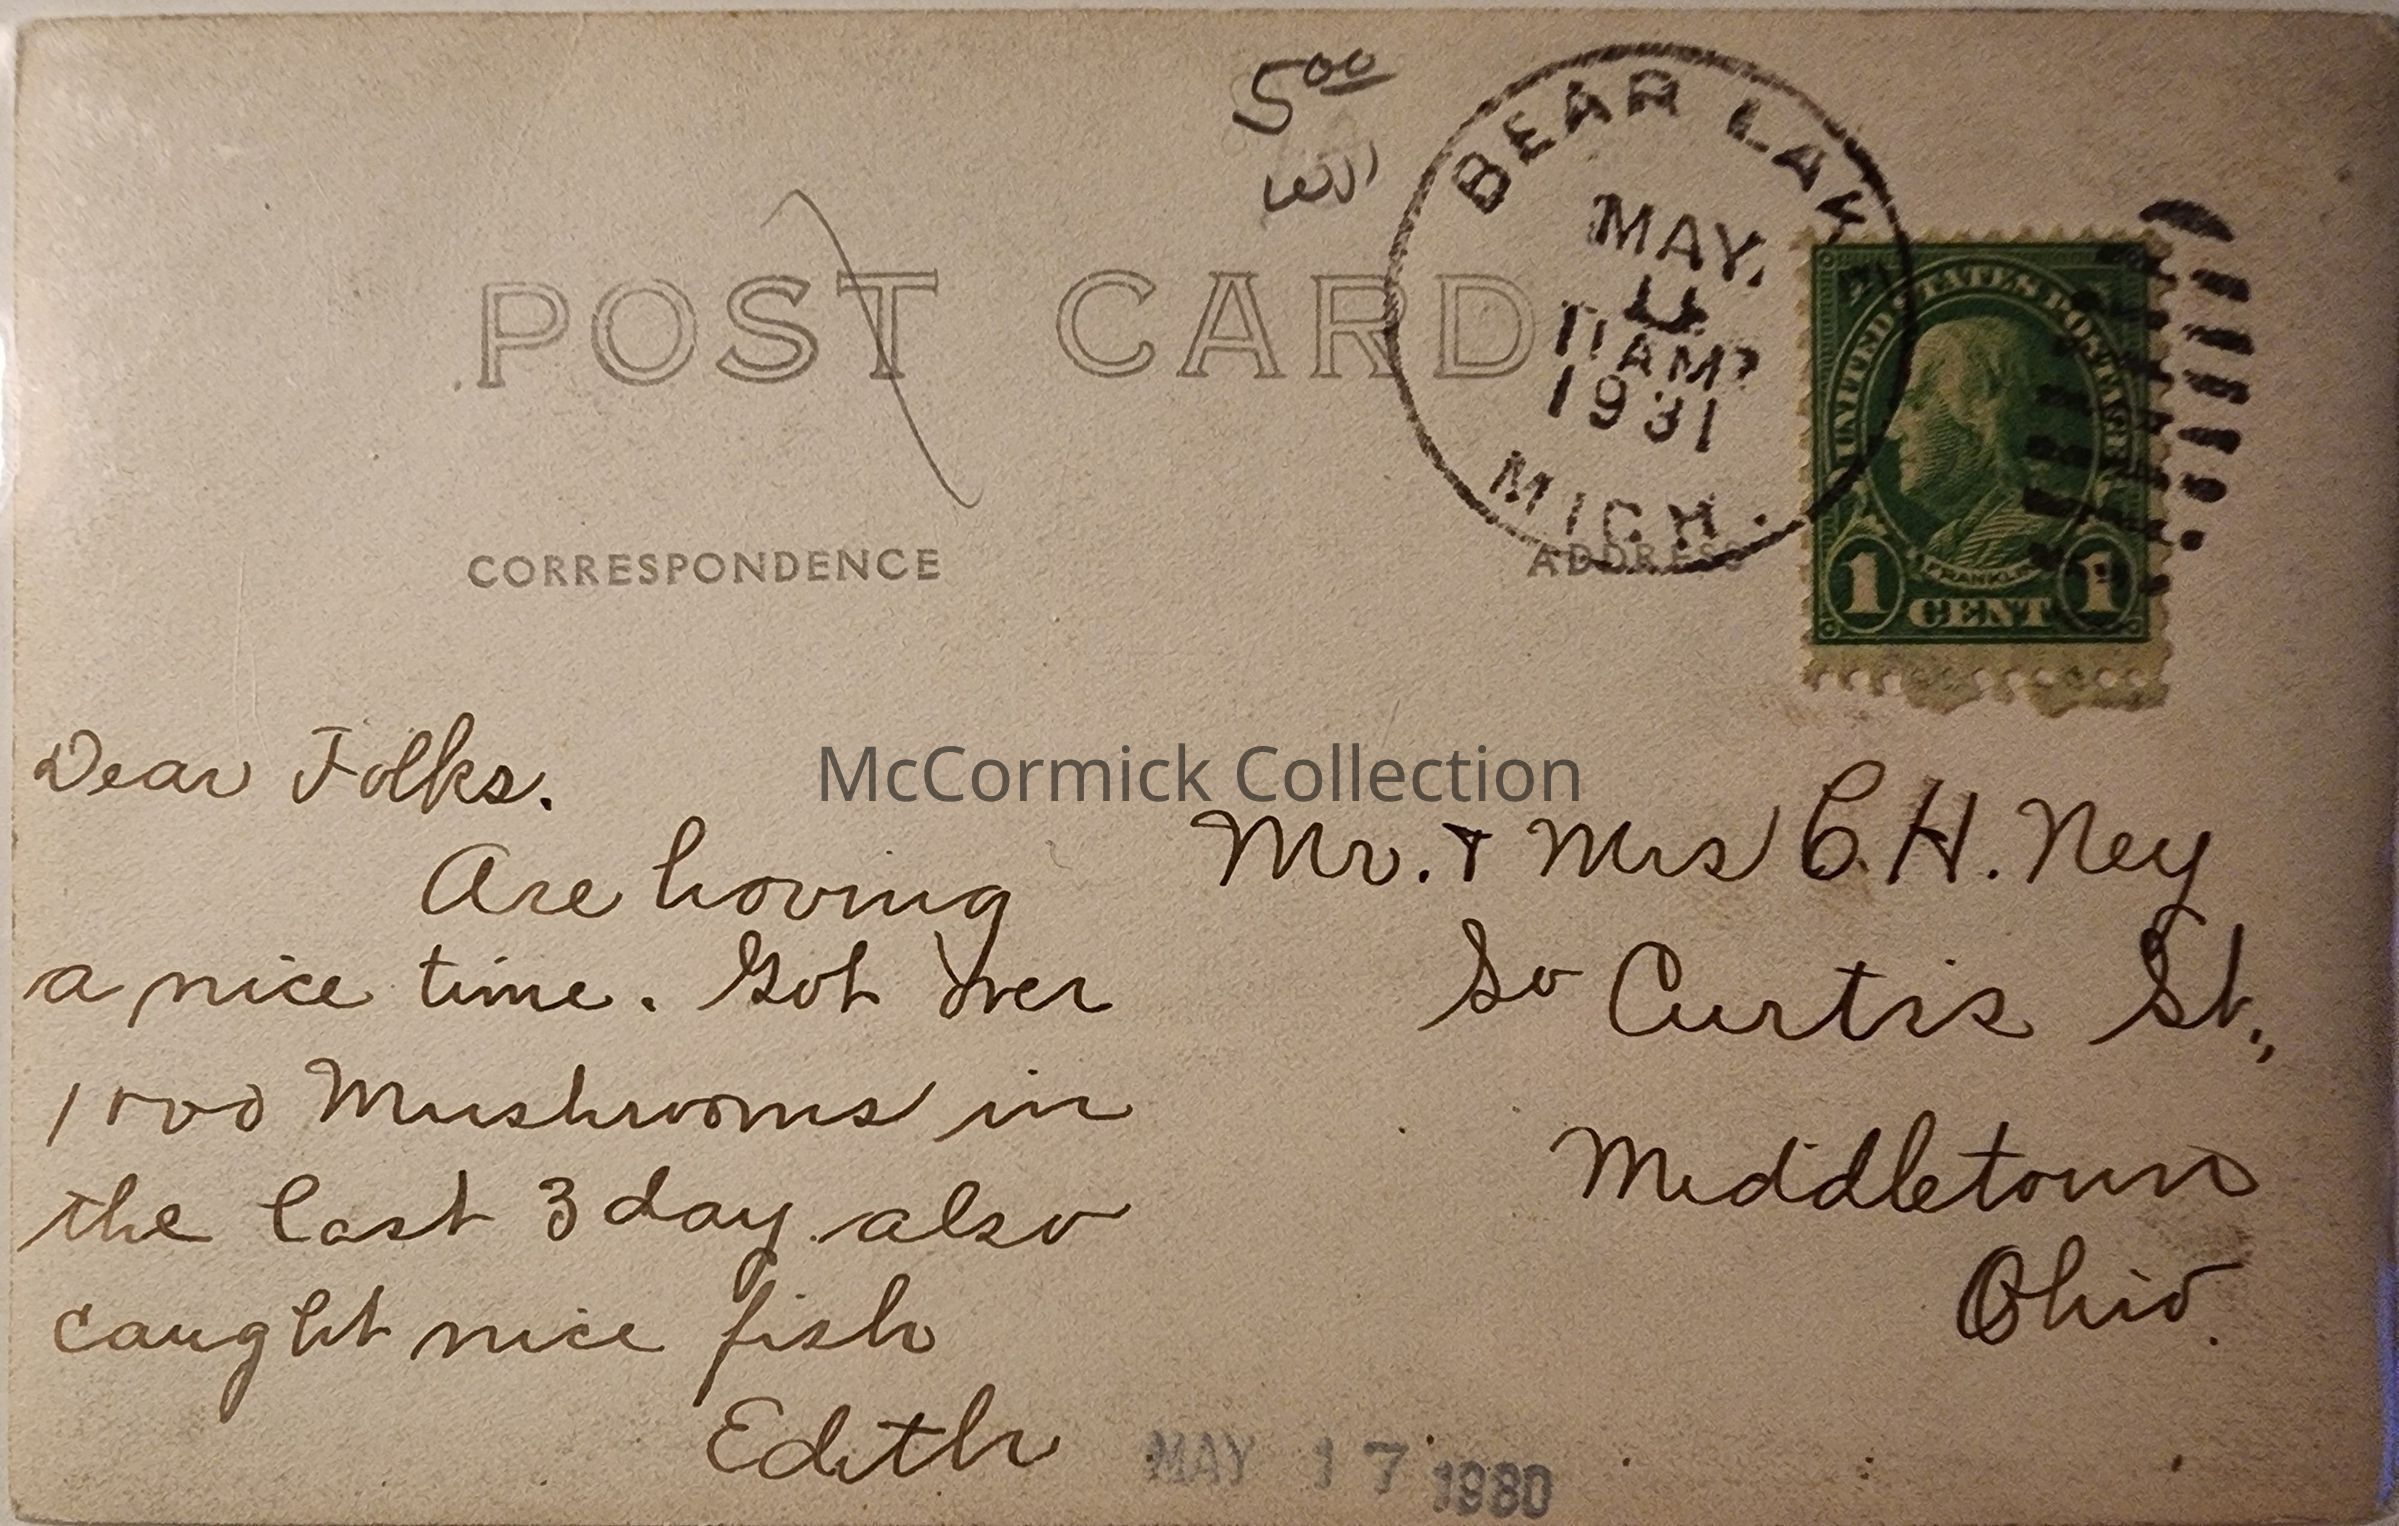 5 00
POST CARD
BEAR LAKE
MAY.
11
11 AM
1931
MICH.
UNITED STATES POSTAGE
FRANKLIN
1 CENT 1
CORRESPONDENCE
ADDRESS
McCormick Collection
Dear Folks.
Are having
a nice time. Got over
1000 Mushrooms in
the last 3 day also
caught nice fish
Edith
Mr. & Mrs C. H. Ney
So Curtis St.,
Middletown
Ohio.
MAY 17 1980